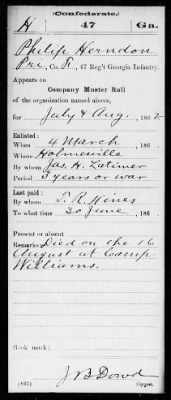 (Confederate.)
H 47 Ga.
Philip Herndon
Pri, Co. K, 47 Reg't Georgia Infantry.
Appears on
Company Muster Roll
of the organization named above,
for July & Aug., 1862
Enlisted:
When 4 March, 186
Where Holmesville
By whom Jas. H. Latimer
Period 3 years or war
Last paid:
By whom T. R. Hines
To what time 30 June, 186
Present or absent
Remarks: Died on the 16
August at Camp
Williams.
Book mark:
(642) J B Dowd Copyist.